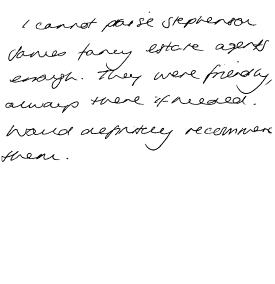 I cannot praise Stephenson
James fancy estate agents
enough. They were friendly,
always there if needed.
Would definitely recommend
them.